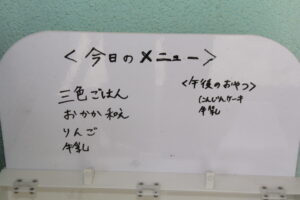 ＜今日のメニュー＞
三色ごはん
おかか和え
りんご
牛乳
＜午後のおやつ＞
にんじんケーキ
牛乳